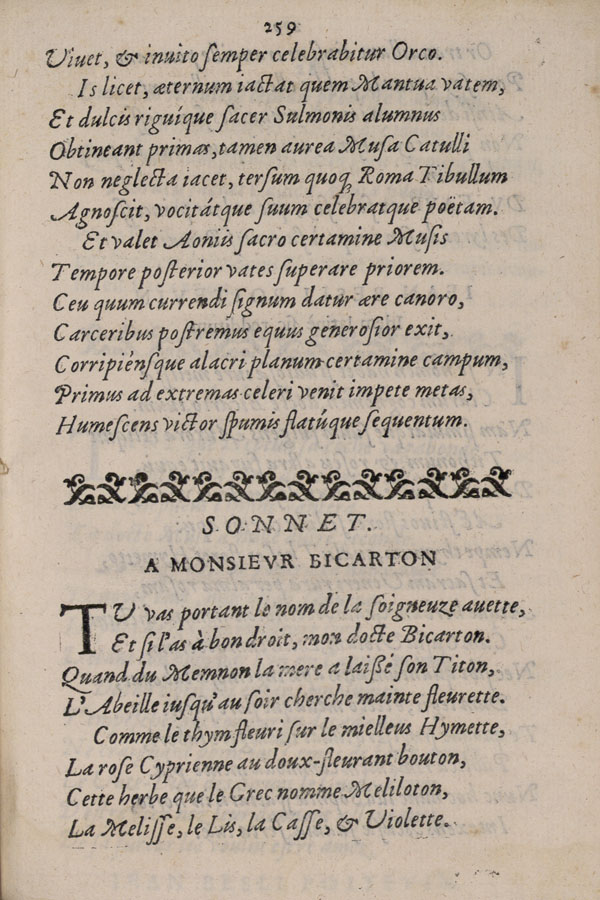 259
Viuet, & inuito ſemper celebrabitur Orco.
Is licet, æternum iactat quem Mantua vatem,
Et dulcis riguíque ſacer Sulmonis alumnus
Obtineant primas, tamen aurea Muſa Catulli
Non neglecta iacet, terſum quoq; Roma Tibullum
Agnoſcit, vocitátque ſuum celebratque poëtam.
Et valet Aoniis ſacro certamine Muſis
Tempore poſterior vates ſuperare priorem.
Ceu quum currendi ſignum datur ære canoro,
Carceribus poſtremus equus generoſior exit,
Corripiénſque alacri planum certamine campum,
Primus ad extremas celeri venit impete metas,
Humeſcens victor ſpumis flatúque ſequentum.
SONNET.
A MONSIEVR BICARTON
TV vas portant le nom de la ſoigneuze auette,
Et ſi l'as à bon droit, mon docte Bicarton.
Quand du Memnon la mere a laißé ſon Titon,
L'Abeille iuſqu'au ſoir cherche mainte fleurette.
Comme le thym fleuri ſur le mielleus Hymette,
La roſe Cyprienne au doux-fleurant bouton,
Cette herbe que le Grec nomme Meliloton,
La Meliſſe, le Lis, la Caſſe, & Violette.